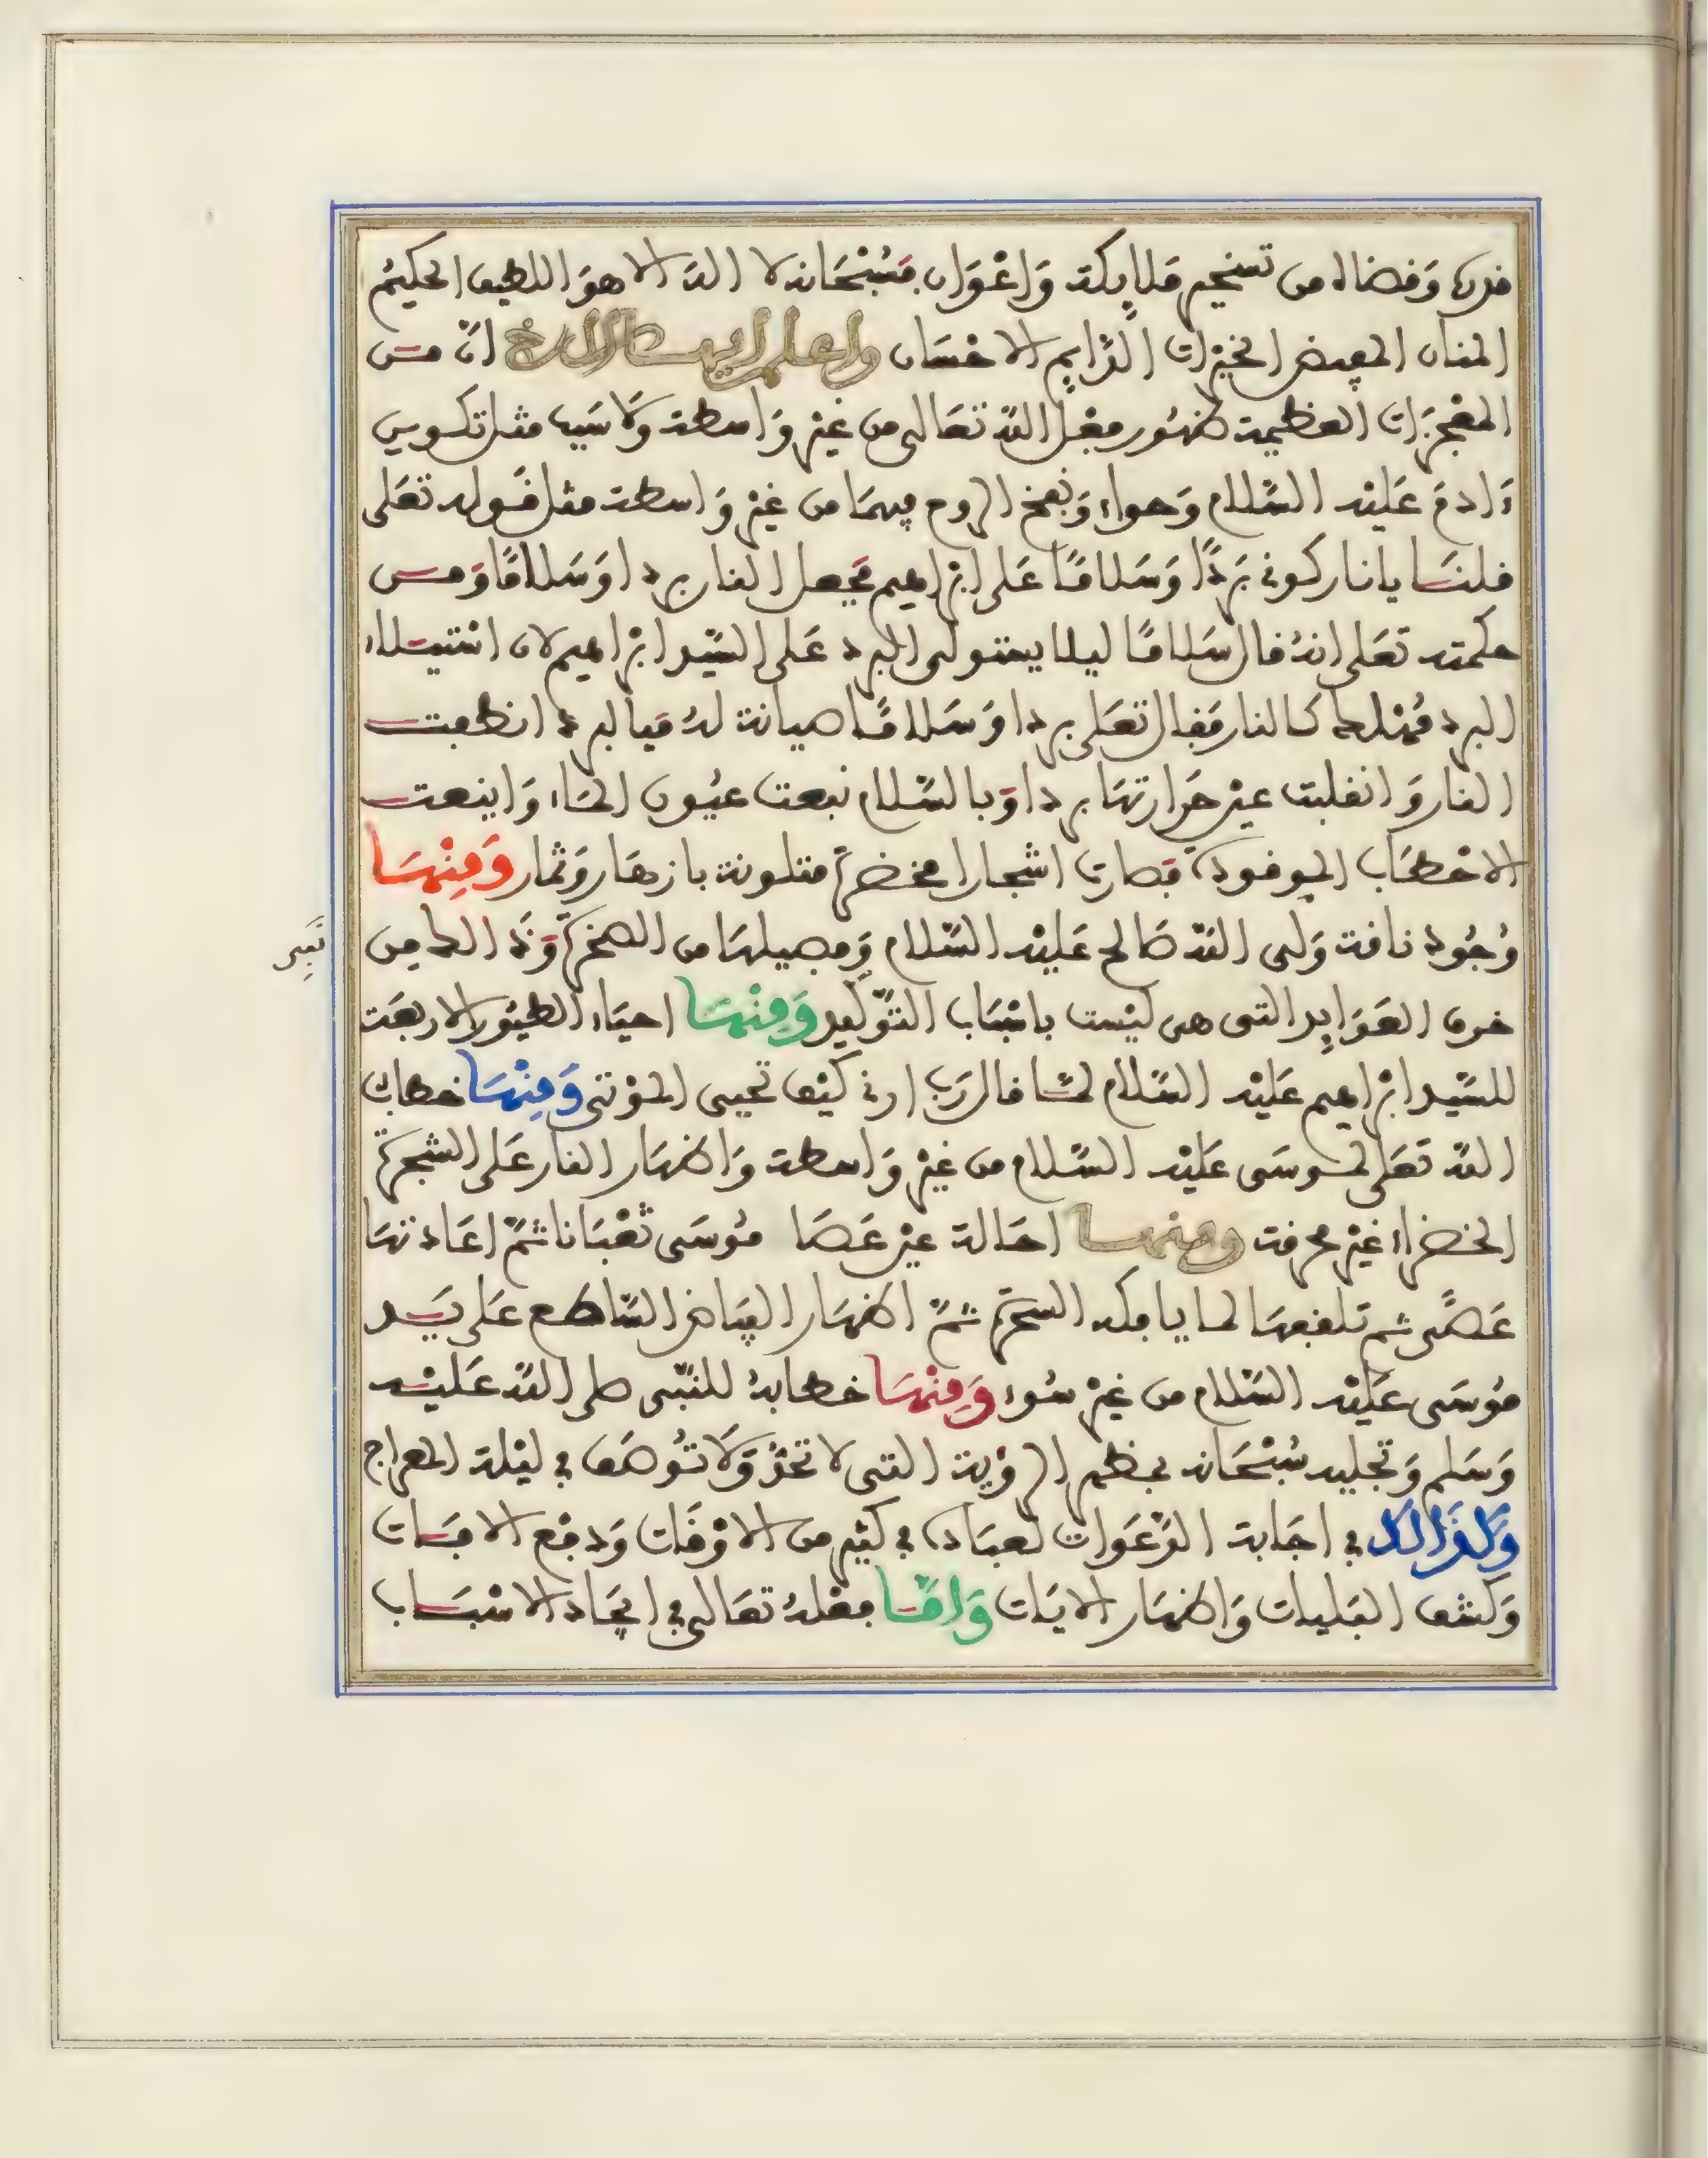 قدره وقضاه من تسخير ملايكة وَاعْوَان فسُبْحَانه لا اله الا هوَ اللطيف الحكيمُ
المنان المفيض الخيرات الدَّايم الاحْسَان واعلم ايها الاخ انّ من
المعْجزَات العظيمة ظهُور فعْل الله تعَالى من غير وَاسطة وَلا سَبب مثل تكوين
ءَادمَ عَليْه السَّلام وَحواء وَنفخ الروح فيهمَا من غير وَاسطة مثل قَوله تعَلى
قلنا يا نار كوني بَردًا وَسَلامًا عَلى ابْراهيم فجعل النار بردا وَسَلامًا وَمن
حكمته تعَلى انهُ قال سَلامًا ليلا يستولى البرد عَلى السَّيد ابْراهيم لان اسْتيلاء
البرد مُهْلك كالنار فقال تعَلى بردا وَسَلامًا صيانة لهُ فبالبرد انطفت
النار وَانقلبت عين حَرَارتهَا بردا وَبالسَّلام نبعت عيُون المَاء وَاينعت
الاحْطاب الموقودة فصارت اشجارا مخضرة متلونة بازهَار وَثمار وَمِنْهَا
وُجُود ناقة وَلى الله صَالح عَليْه السَّلام وَفصيلهَا من الصخرة وَذالك من
نَبِى
خرق العَوَايد التى هى ليْست باسْبَاب التوْليد وَمِنْهَا احيَاء الطيُور الاربَعَة
للسَّيد ابْراهيم عَليْه السَّلام لما قال رَب ارنى كيْف تحيى الموْتى وَمِنْهَا خطاب
الله تعَالى لموسَى عَليْه السَّلام من غيْر وَاسطة وَاظهَار النار عَلى الشجَرة
الخضراء غيْر محرقة ومنها احَالة عيْن عَصَا مُوسَى ثعْبَانا ثمّ اعَادتهَا
عَصًى ثم تلقفهَا لما يافكه السحَرة ثمّ اظهَار البيَاض السَّاطع عَلى يَد
مُوسَى عَليْه السَّلام من غيْر سُوء وَمِنْهَا خطابهُ للنَّبى صلى الله عَليْه
وَسَلم وَتجليه سُبْحَانه بعظيم الرؤية التى لا تحَدُّ وَلا تُوصَف في ليْلة المعراج
وَكَذَالك في اجَابة الدَّعَوات لعبَاده في كثير من الاوْقات وَدفْع الافات
وَكشف البَليات وَاظهَار الايَات وَامَّا فعْلهُ تعَالى في ايجَاد الاسْبَاب